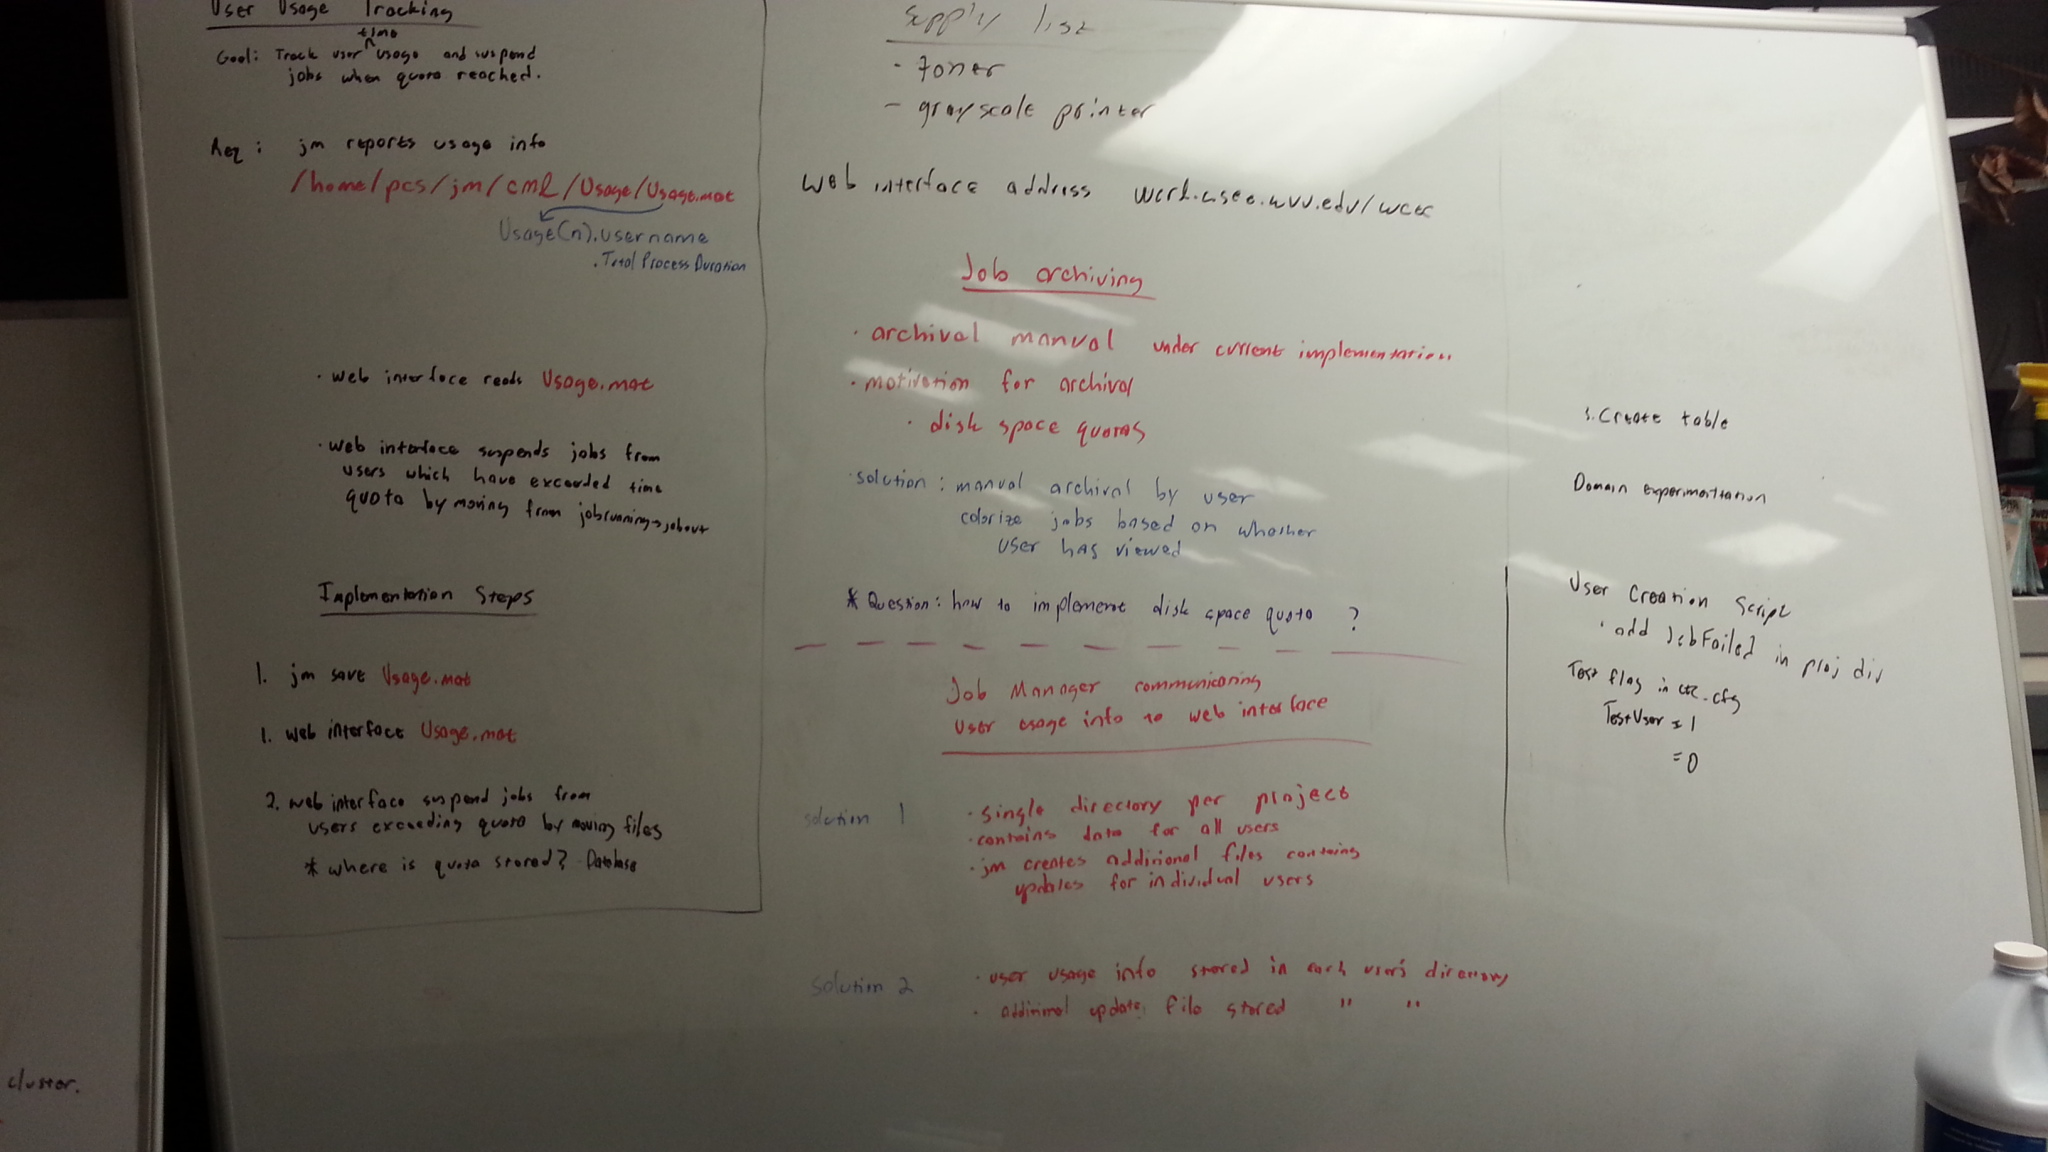 User Usage Tracking
time
Goal: Track user ^ usage and suspend
jobs when quota reached.
Req: jm reports usage info
/home/pcs/jm/cml/Usage/Usage.mat
Usage(n).username
.Total Process Duration
· web interface reads Usage.mat
· web interface suspends jobs from
users which have exceeded time
quota by moving from jobrunning→jobout
Implementation Steps
1. jm save Usage.mat
1. web interface Usage.mat
2. web interface suspend jobs from
users exceeding quota by moving files
* where is quota stored? Database
cluster.
supply list
- toner
- grayscale printer
web interface address
Job archiving
· archival manual under current implementation
· motivation for archival
· disk space quotas
· solution: manual archival by user
colorize jobs based on whether
user has viewed
* Question: how to implement disk space quota ?
Job Manager communicating
user usage info to web interface
solution 1
· single directory per project
· contains data for all users
· jm creates additional files containing
updates for individual users
solution 2
· user usage info stored in each user's directory
· additional update file stored " "
1. Create table
Domain experimentation
User Creation Script
· add JobFailed in proj dir
Test flag in .cfg
TestUser = 1
= 0